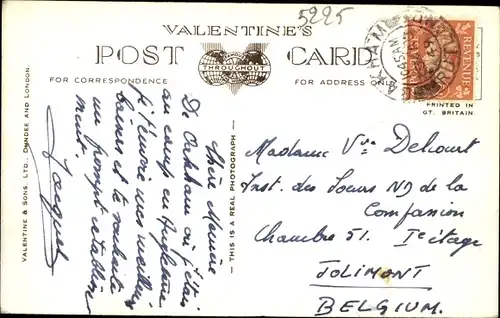 5225
VALENTINE'S
POST CARD
THROUGHOUT
FOR CORRESPONDENCE
FOR ADDRESS ONLY
REVENUE
PRINTED IN
GT. BRITAIN.
VALENTINE & SONS, LTD., DUNDEE AND LONDON.
THIS IS A REAL PHOTOGRAPH
Chère Mamie
De Oakham où j'étais
au camp en Angleterre
je t'envoie mes meilleurs
baisers et te souhaite
un prompt rétablisse
ment.
Jacques
Madame Vve Delcourt
Inst. des Soeurs ND de la
Compassion
Chambre 51. Ie étage
JOLIMONT
BELGIUM.